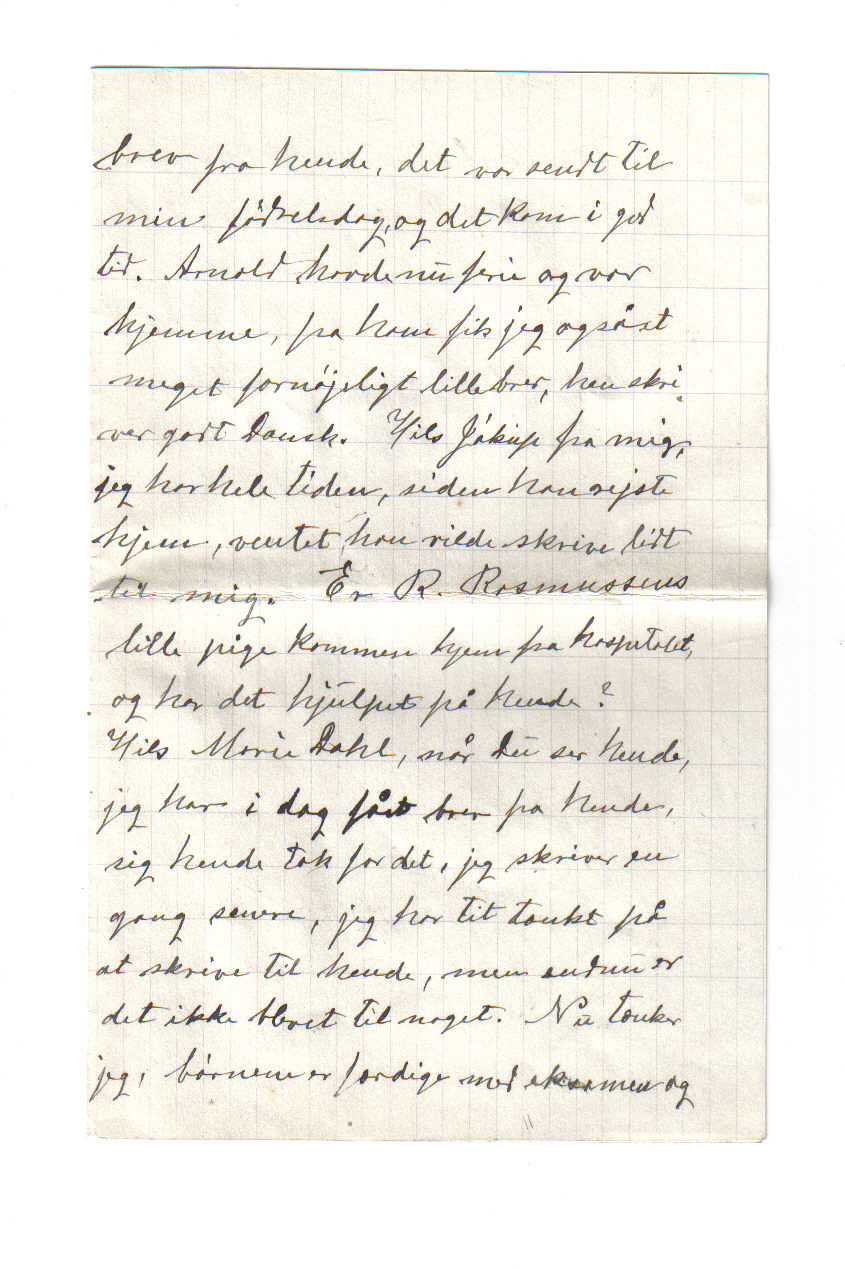 brev fra hende, det var sendt til
min fødselsdag, og det kom i god
tid. Arnold havde nu ferie og var
hjemme, fra ham fik jeg også et
meget fornøjeligt lille brev, han skri-
ver godt Dansk. Hils Jákup fra mig,
jeg har hele tiden, siden han rejste
hjem, ventet, han vilde skrive lidt
til mig. Er R. Rasmussens
lille pige kommen hjem fra hospitalet,
og har det hjulpet på hende?
Hils Marie Dahl, når Du ser hende,
jeg har i dag fået brev fra hende,
sig hende tak for det, jeg skriver en
gang senere, jeg har tit tænkt på
at skrive til hende, men endnu er
det ikke blevet til noget. Nu tænker
jeg, børnene er færdige med eksamen og